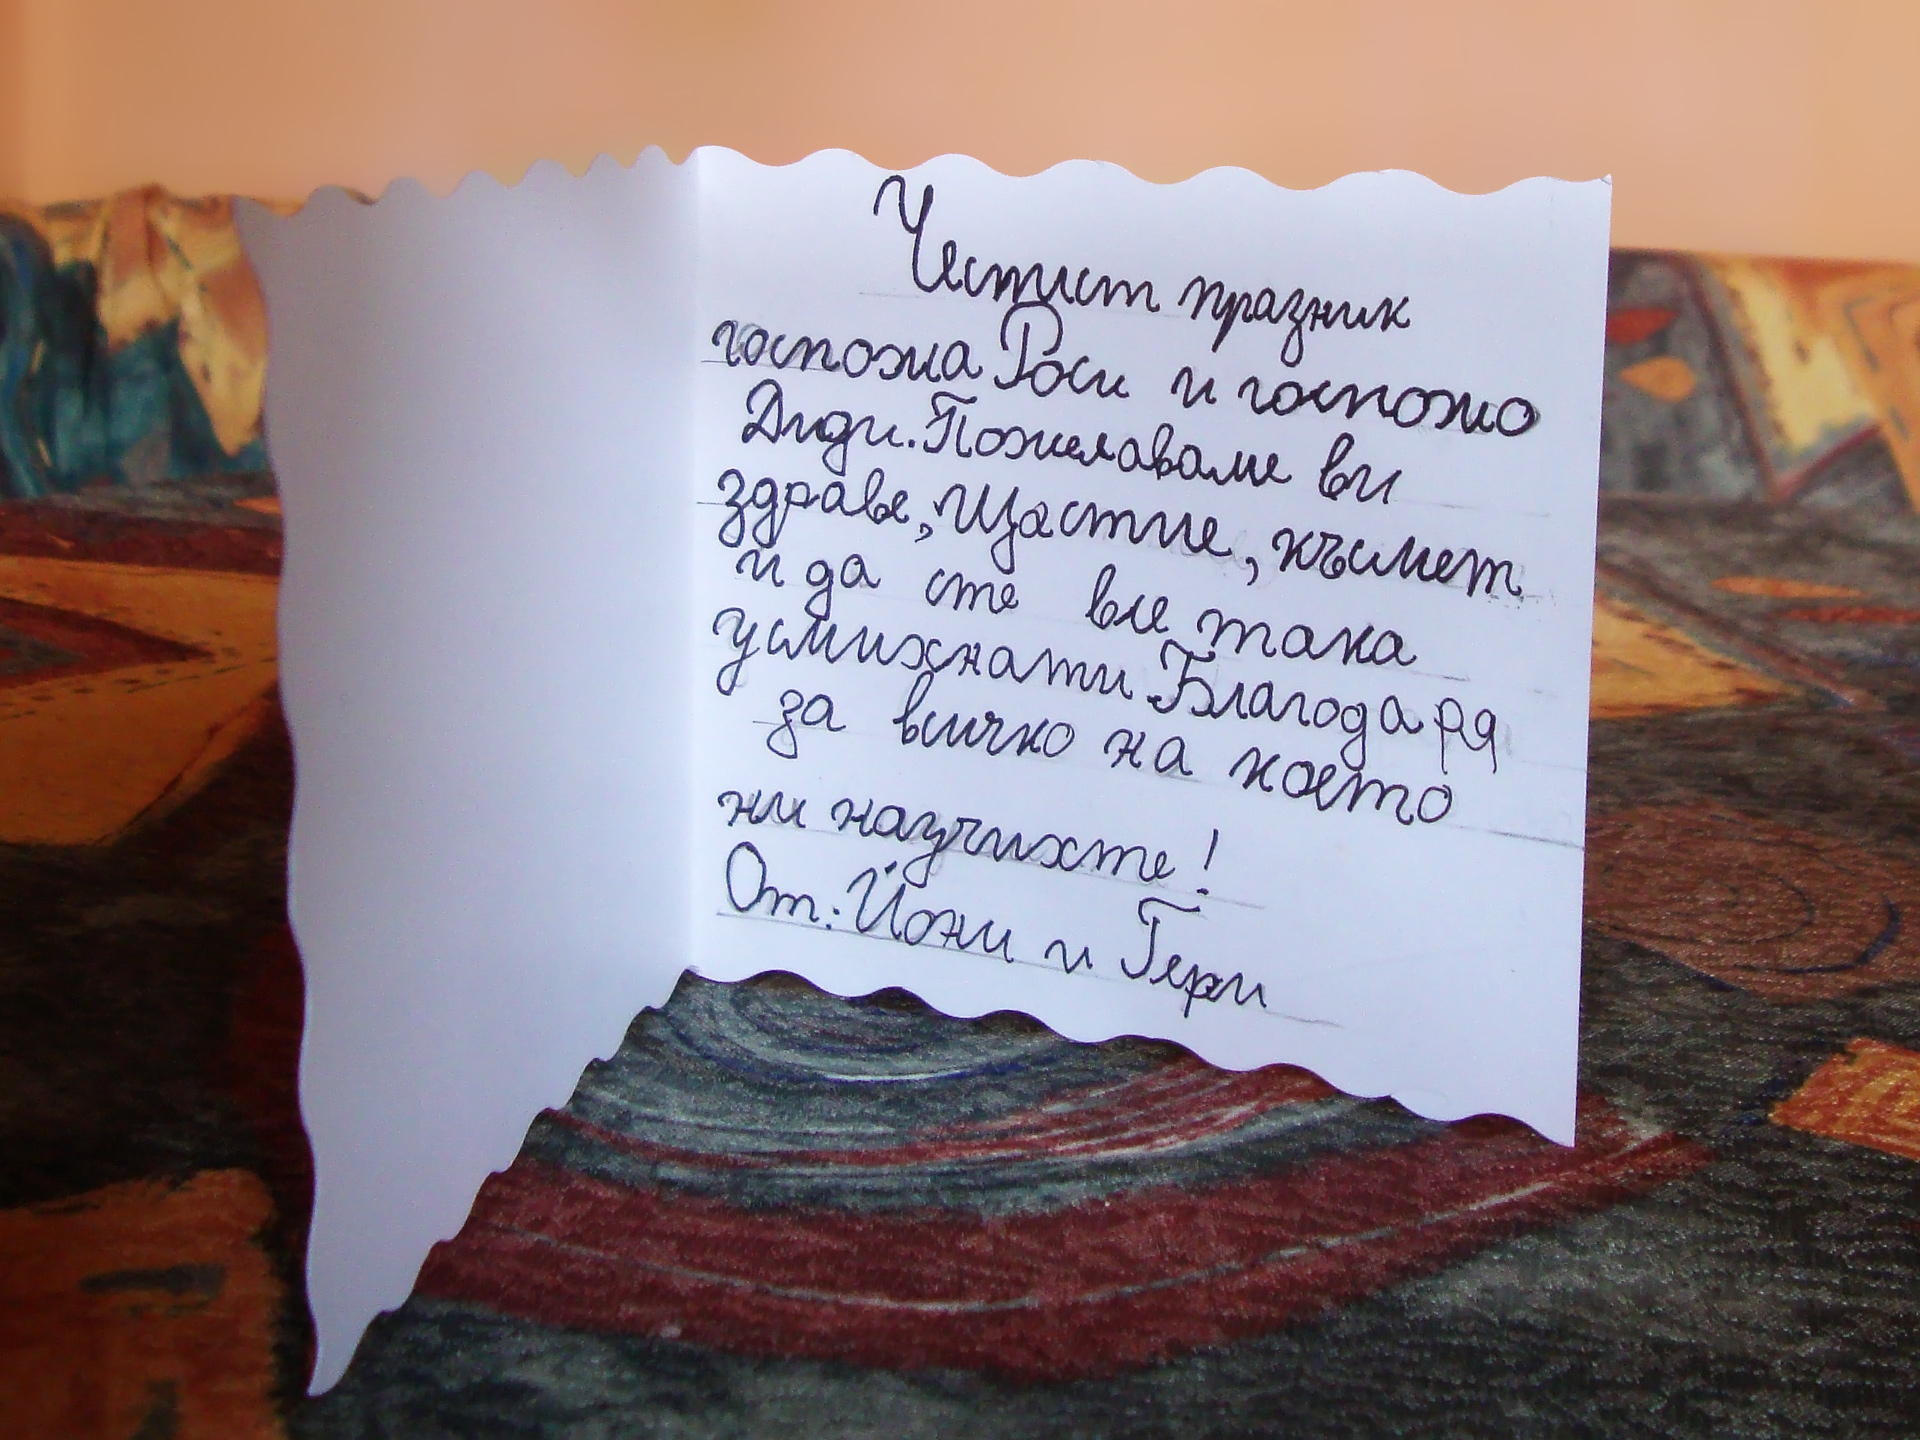 Честит празник
госпожа Роси и госпожо
Диди. Пожелаваме ви
здраве, Щастие, късмет
и да сте все така
усмихнати. Благодаря
за всичко на което
ни научихте!
От: Йони и Гери